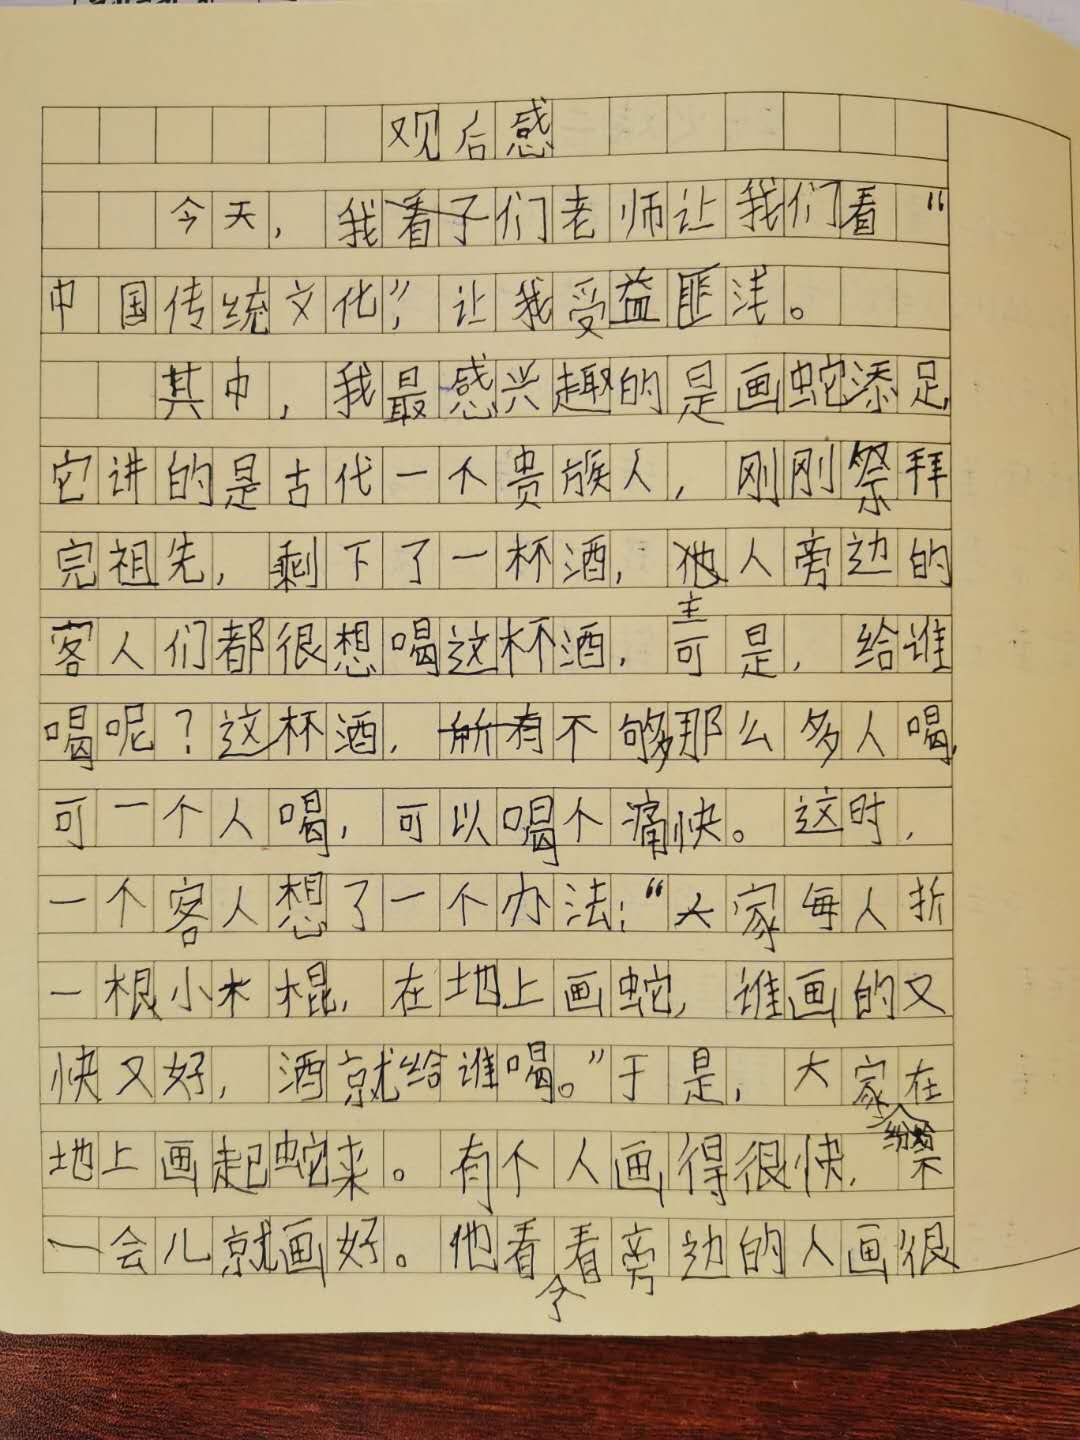 观后感
今天，我们老师让我们看“
中国传统文化”，让我受益匪浅。
其中，我最感兴趣的是画蛇添足，
它讲的是古代一个贵族人，刚刚祭拜
完祖先，剩下了一杯酒，主人旁边的
客人们都很想喝这杯酒，可是，给谁
喝呢？这杯酒，不够那么多人喝，
可一个人喝，可以喝个痛快。这时，
一个客人想了一个办法：“大家每人折
一根小木棍，在地上画蛇，谁画的又
快又好，酒就给谁喝。”于是，大家纷纷在
地上画起蛇来。有个人画得很快，不
一会儿就画好。他看了看旁边的人画很